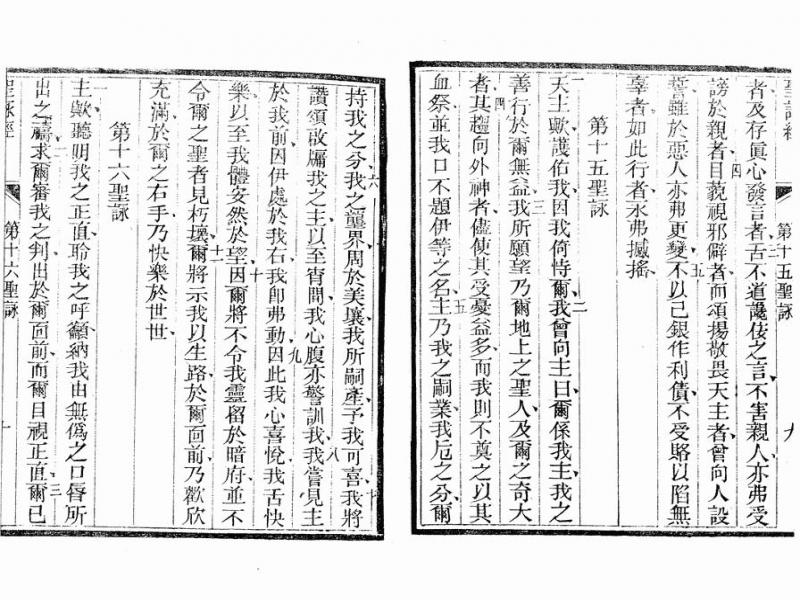 第十五聖詠
者及存眞心發言者三舌不道讒佞之言、不害親人、亦弗受
謗於親者、四目藐視邪僻者、而頌揚敬畏天主者、曾向人設
誓、雖於惡人亦弗更變、五不以己銀作利債、不受賂以陷無
辜者、如此行者、永弗撼搖、
第十五聖詠
一天主歟、護佑我、因我倚恃爾、二我曾向主曰、爾係我主、我之
善行於爾無益、三我所願望、乃爾地上之聖人、及爾之奇大
者、四其趨向外神者、儘使其受憂益多、而我則不奠之以其
血祭、並我口不題伊等之名、五主乃我之嗣業、我卮之分、爾
持我之分、六我之壟界周於美壤、我所嗣產予我可喜、七我將
讚頌啟牖我之主、以至宵間、我心腹亦警訓我、八我嘗見主
於我前、因伊處於我右、我卽弗動、九因此我心喜悅、我舌快
樂、以至我體安然於望、十因爾將不令我靈留於暗府、並不
令爾之聖者見朽壞、十一爾將示我以生路、於爾面前乃歡欣
充滿、於爾之右手乃快樂於世世、
第十六聖詠
一主歟、聽明我之正直、聆我之呼籲、納我由無僞之口唇所
出之禱、二求爾審我之判出於爾面前、而爾目視正直、三爾已
聖詠經 第十六聖詠